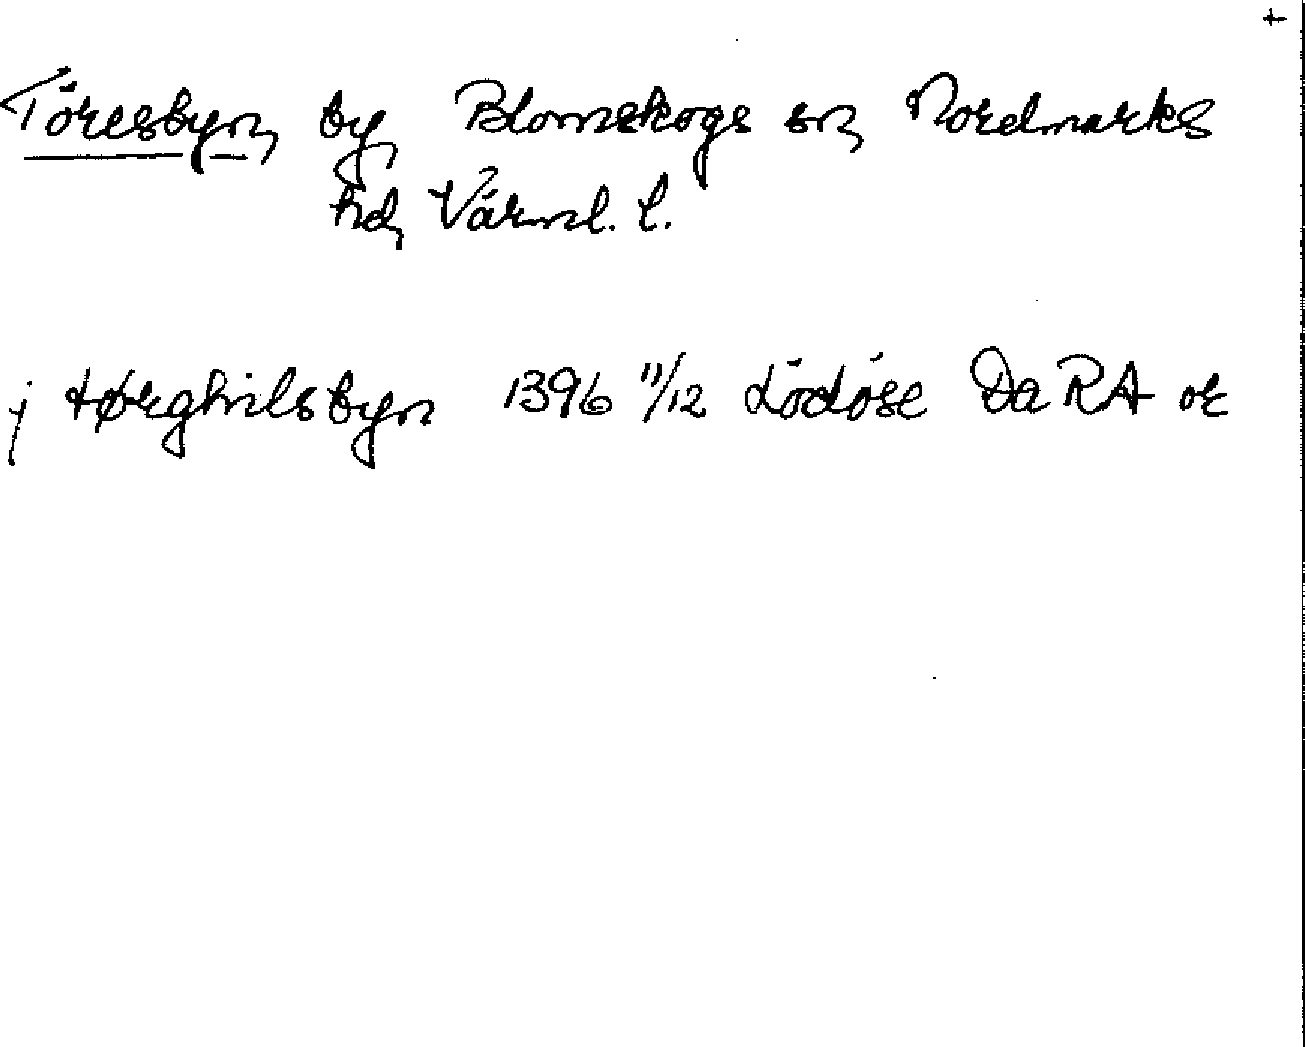 +
Töresbyn, by, Blomskogs sn, Nordmarks
hd, Värml. l.
j tørghilsbyn 1396 11/12 Lödöse DaRA or